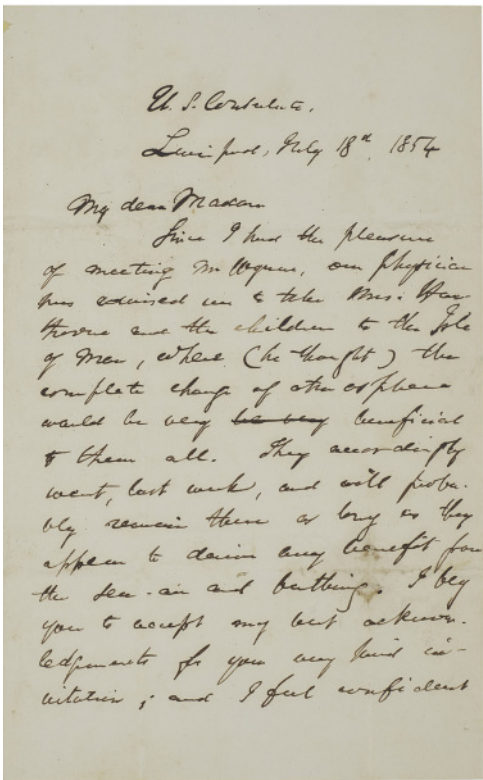 U. S. Consulate,
Liverpool, July 18th, 1854
My dear Madam
Since I had the pleasure
of meeting Mr. , our physician
has advised me to take Mrs. Haw-
thorne and the children to the Isle
of Man, where (he thought) the
complete change of atmosphere
would be very be very beneficial
to them all. They accordingly
went, last week, and will proba-
bly remain there as long as they
appear to derive any benefit from
the sea-air and bathing. I beg
you to accept my best acknow-
ledgments for your very kind in-
vitation; and I feel confident